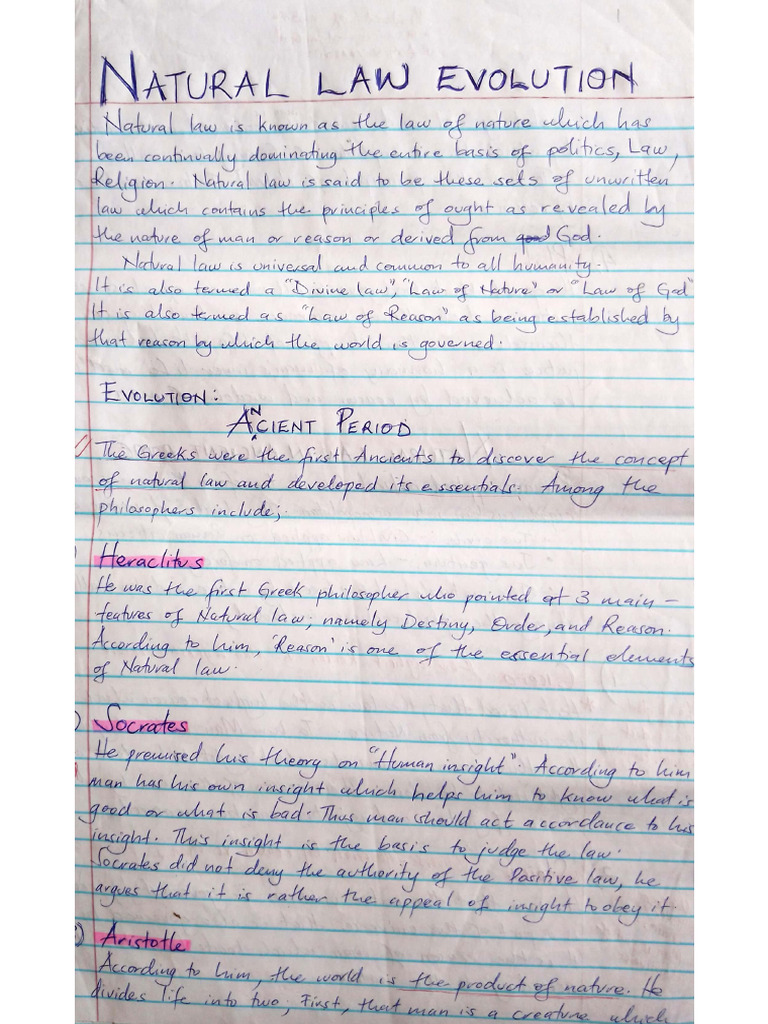 NATURAL LAW EVOLUTION
Natural law is known as the law of nature which has
been continually dominating the entire basis of politics, Law,
Religion. Natural law is said to be these sets of unwritten
law which contains the principles of ought as revealed by
the nature of man or reason or derived from God.
Natural law is universal and common to all humanity.
It is also termed a "Divine law", "Law of Nature" or "Law of God"
It is also termed as "Law of Reason" as being established by
that reason by which the world is governed.
EVOLUTION:
ANCIENT PERIOD
The Greeks were the first Ancients to discover the concept
of natural law and developed its essentials. Among the
philosophers include;
Heraclitus
He was the first Greek philosopher who pointed at 3 main -
features of Natural law; namely Destiny, Order, and Reason.
According to him, 'Reason' is one of the essential elements
of Natural law.
) Socrates
He premised his theory on "Human insight". According to him
man has his own insight which helps him to know what is
good or what is bad. Thus man should act accordance to his
insight. This insight is the basis to judge the law.
Socrates did not deny the authority of the Positive law, he
argues that it is rather the appeal of insight to obey it.
) Aristotle
According to him, the world is the product of nature. He
divides life into two; First, that man is a creature which